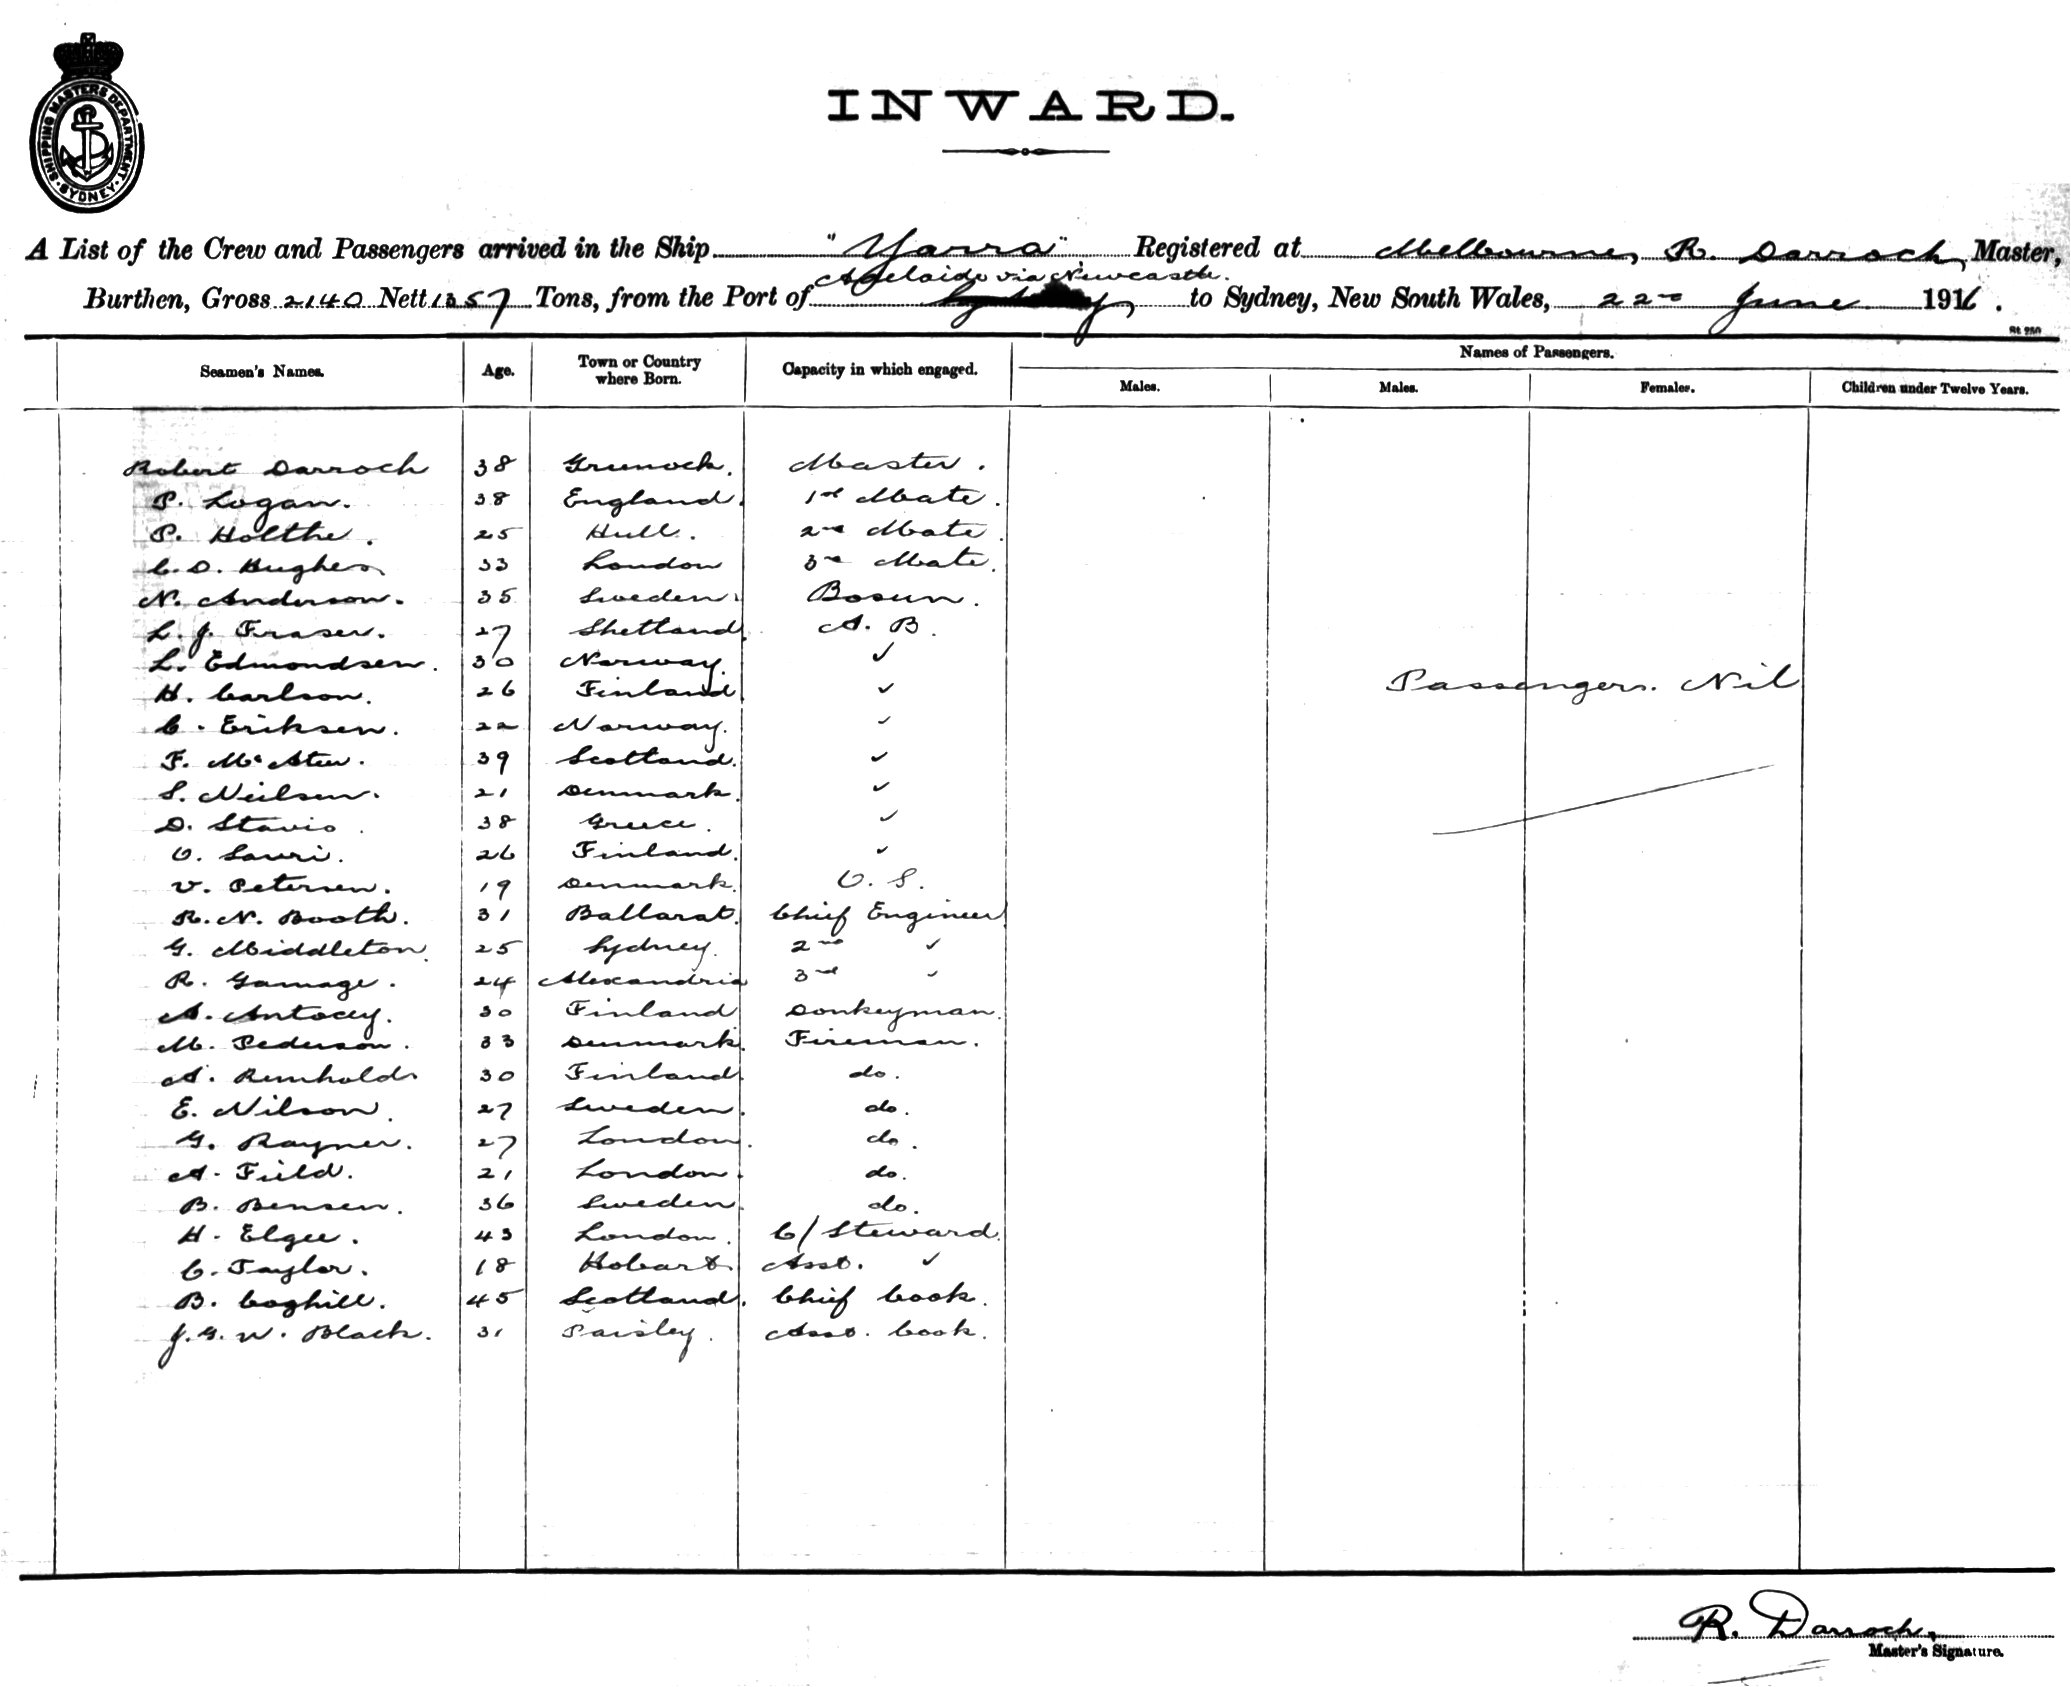 SHIPPING MASTERS DEPARTMENT
SYDNEY
INWARD.
A List of the Crew and Passengers arrived in the Ship "Yarra" Registered at Melbourne, R. Darroch, Master,
Adelaide via Newcastle.
Burthen, Gross 2140 Nett 1357 Tons, from the Port of to Sydney, New South Wales, 22nd June 1916.
St 250
Seamen's Names. Age. Town or Country where Born. Capacity in which engaged. Names of Passengers.
Males. Males. Females. Children under Twelve Years.
Robert Darroch 38 Greenock. Master.
P. Logan. 38 England. 1st Mate.
P. Holthe. 25 Hull. 2nd Mate.
C. D. Hughes 33 London 3rd Mate.
N. Anderson. 35 Sweden. Bosun.
L. J. Fraser. 27 Shetland. A. B.
L. Edmondsen. 30 Norway. ✓
H. Carlson. 26 Finland. ✓
Passengers. Nil
C. Eriksen. 22 Norway. ✓
F. McAteer. 39 Scotland. ✓
S. Neilsen. 21 Denmark. ✓
D. Stavis. 38 Greece. ✓
O. Lauri. 26 Finland. ✓
V. Petersen. 19 Denmark. O. S.
R. N. Booth. 31 Ballarat. Chief Engineer
G. Middleton. 25 Sydney. 2nd ✓
R. Gamage. 24 Alexandria 3rd ✓
A. Antocey. 30 Finland Donkeyman.
M. Pederson. 33 Denmark. Fireman.
A. Reinhold. 30 Finland. do.
E. Nilson. 27 Sweden. do.
G. Rayner. 27 London. do.
A. Field. 21 London. do.
B. Bensen. 36 Sweden. do.
H. Elgee. 43 London. C/Steward.
C. Taylor. 18 Hobart. Asst. ✓
B. Coghill. 45 Scotland. Chief Cook.
J. G. W. Black. 31 Paisley. Asst. Cook.
R. Darroch.
Master's Signature.